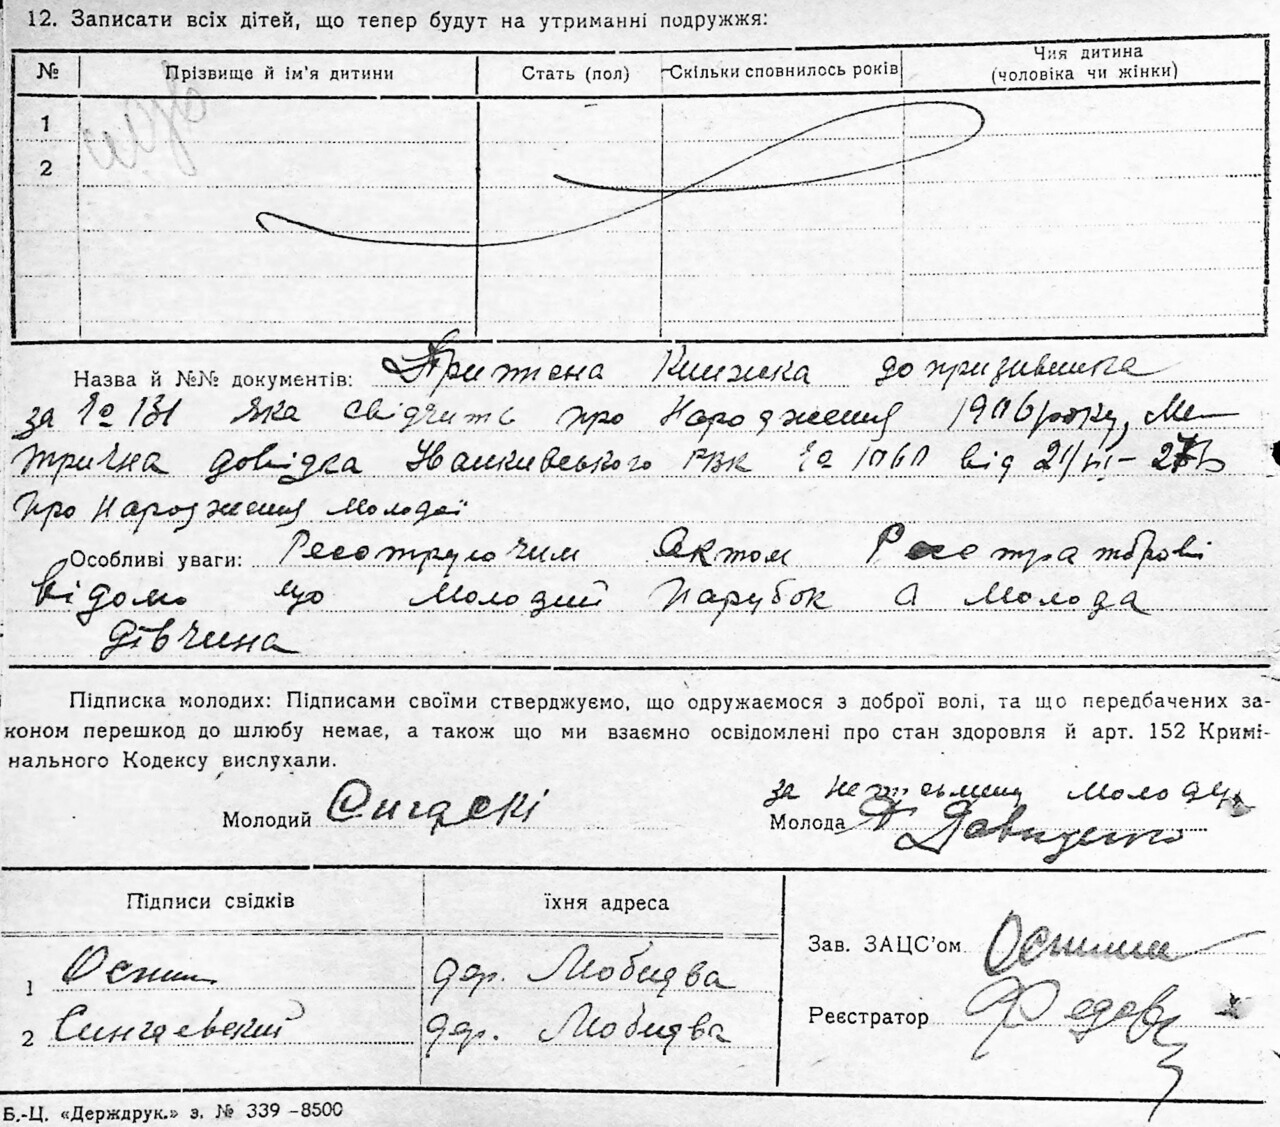 12. Записати всіх дітей, що тепер будут на утриманні подружжя:
№ Прізвище й ім'я дитини Стать (пол) Скільки сповнилось років Чия дитина (чоловіка чи жінки)
1
2
Назва й №№ документів: Книжка допризивника
за № 131 яка свідчить про Народження 1906 року, Ме-
трична довідка Іванкивського РВК № від
про Народження молодої
Особливі уваги: Актом
відомо що молодий парубок а молода
дівчина
Підписка молодих: Підписами своїми стверджуємо, що одружаємося з доброї волі, та що передбачених за-
коном перешкод до шлюбу немає, а також що ми взаємно освідомлені про стан здоровля й арт. 152 Кримі-
нального Кодексу вислухали.
за неписьмену молоду
Молодий Молода Давиденко
Підписи свідків їхня адреса
Зав. ЗАЦС'ом
1 дер.
Реєстратор
2 Сингаевский дер.
Б.-Ц. «Держдрук.» з. № 339 -8500